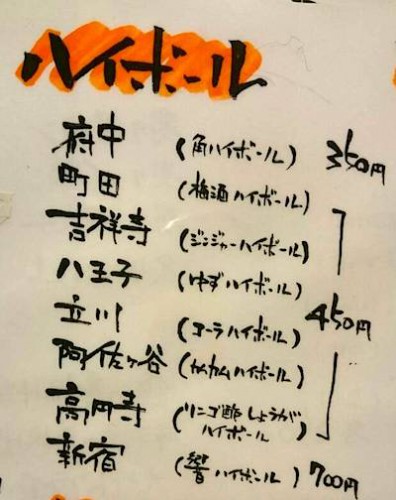 ハイボール
府中 (角ハイボール) 350円
町田 (梅酒ハイボール)
吉祥寺 (ジンジャーハイボール)
八王子 (ゆずハイボール)
立川 (コーラハイボール) 450円
阿佐ヶ谷 (カムカムハイボール)
高円寺 (リンゴ酢しょうが
ハイボール)
新宿 (響ハイボール) 700円